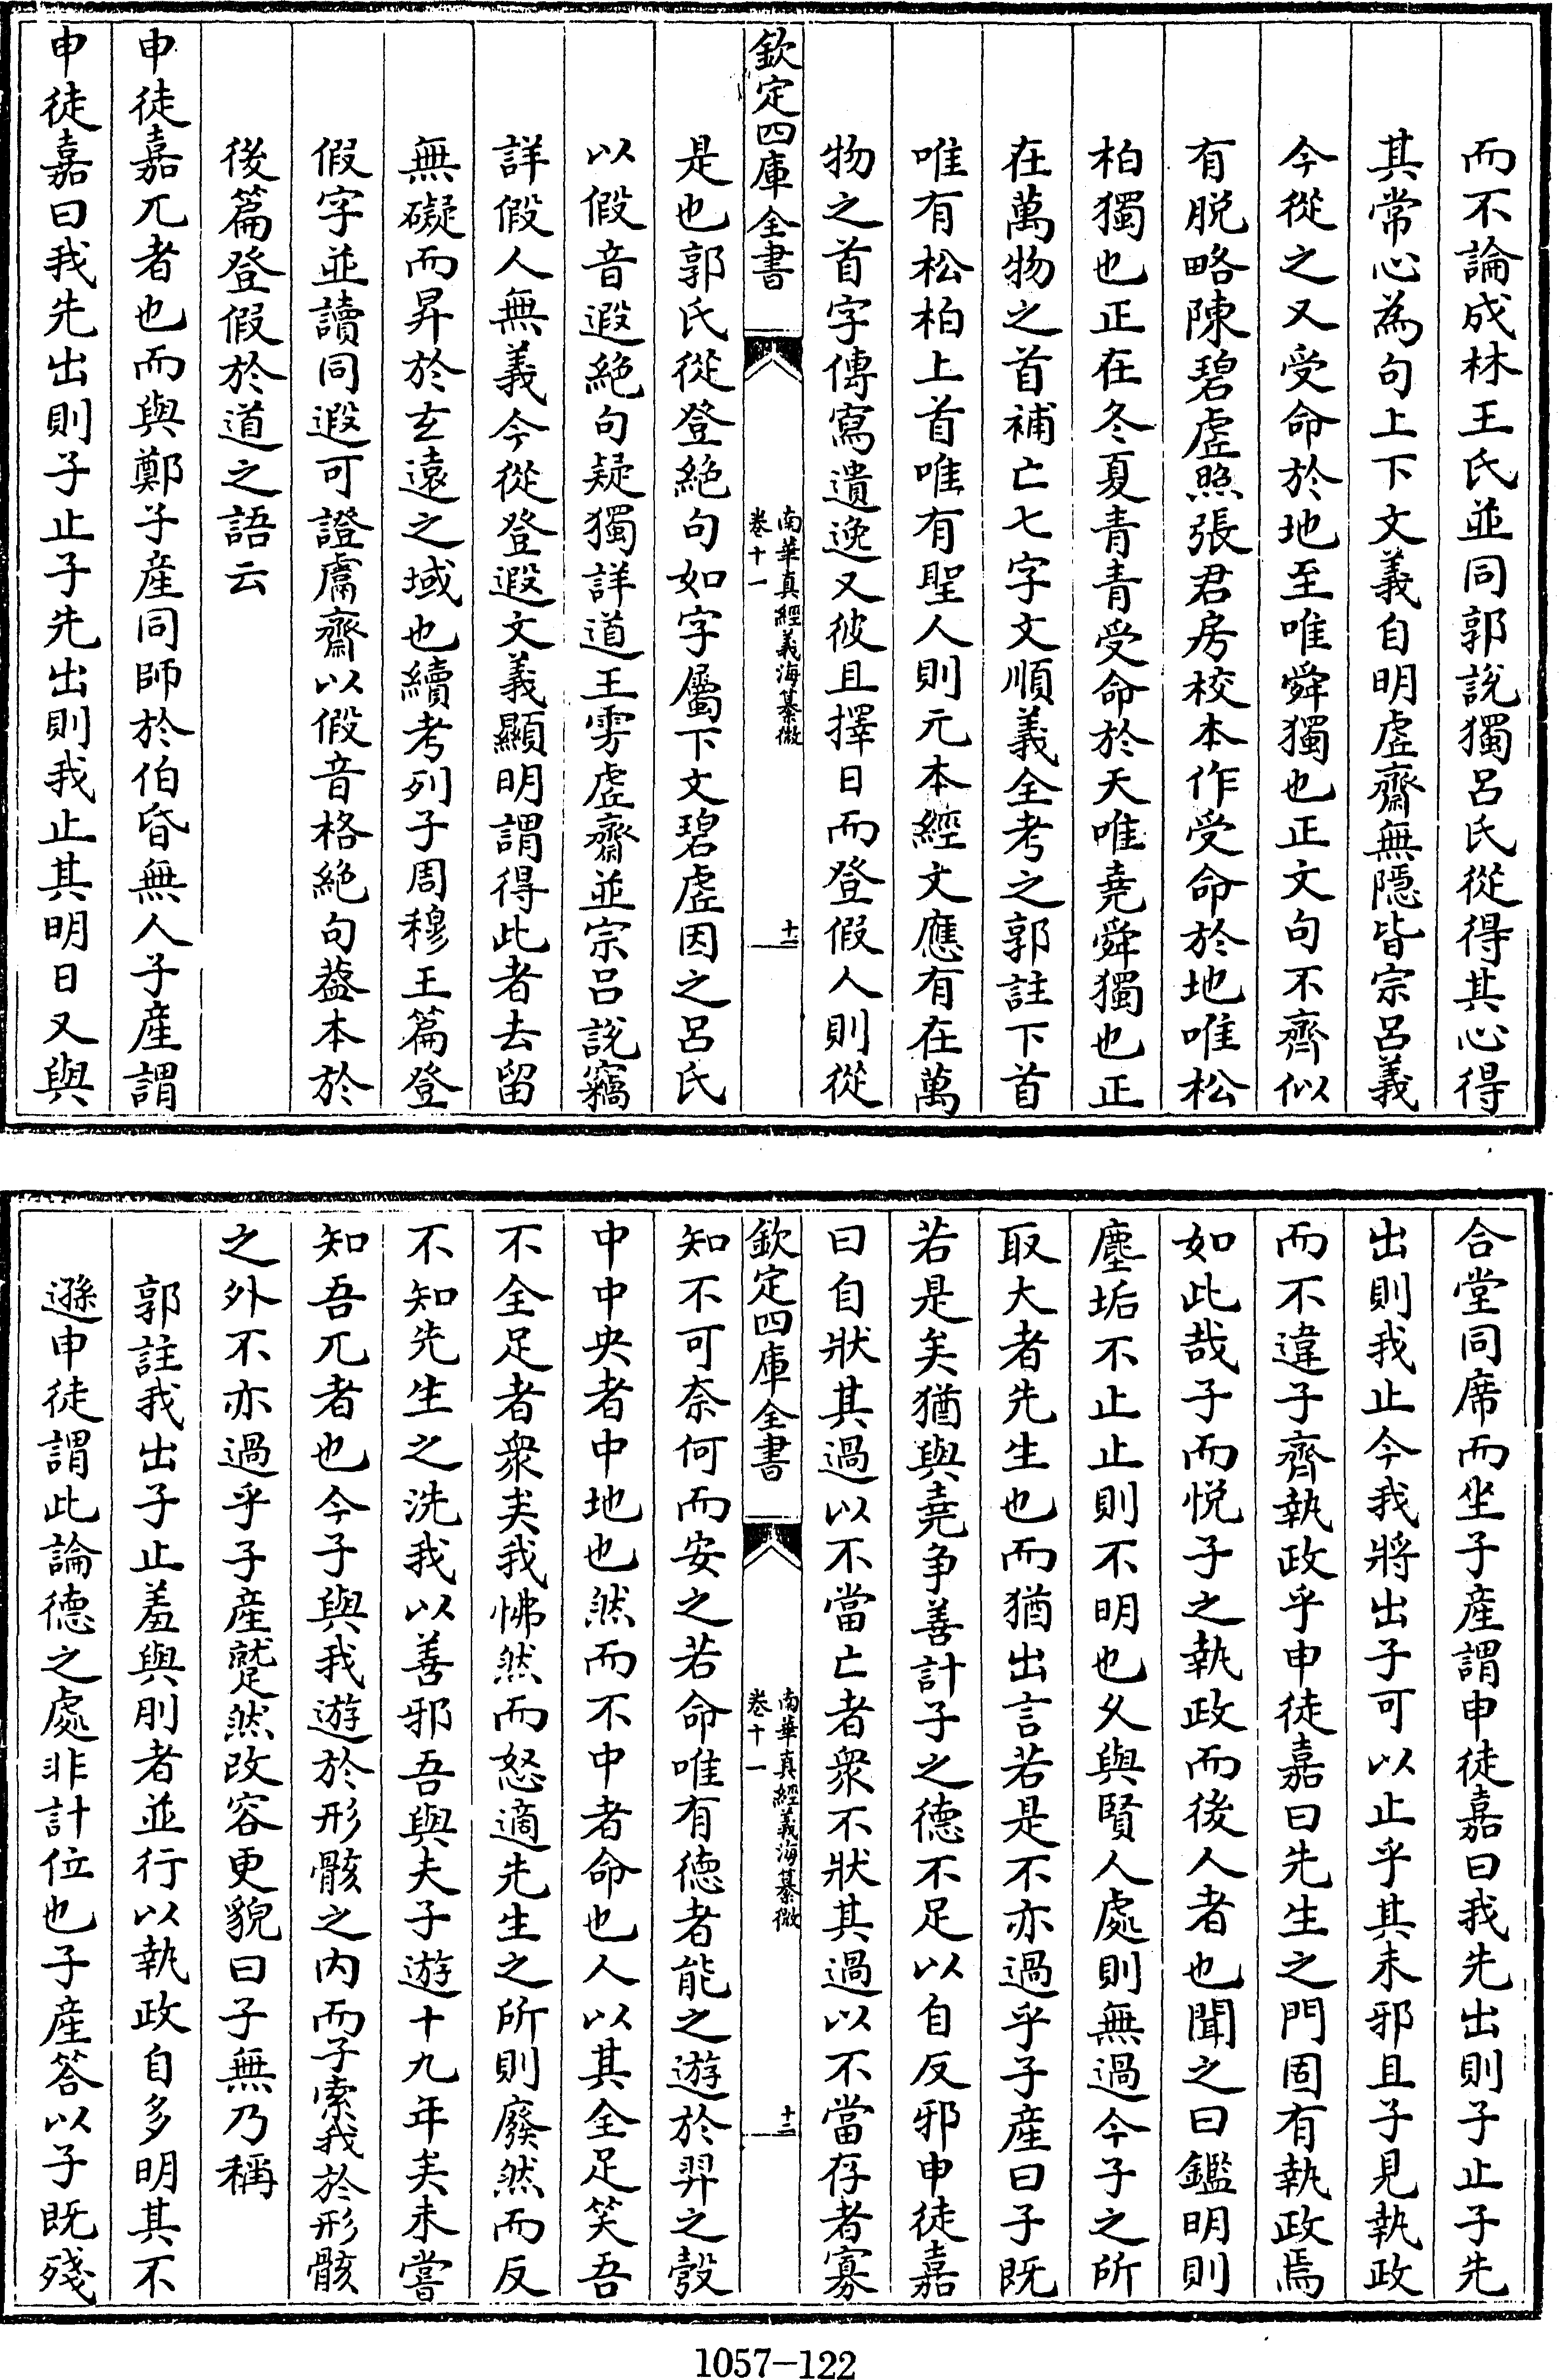 而不論成林王氏並同郭說獨呂氏從得其心得
其常心為句上下文義自明虛齋無隱皆宗呂義
今從之又受命於地至唯舜獨也正文句不齊似
有脱略陳碧虛照張君房校本作受命於地唯松
柏獨也正在冬夏青青受命於天唯堯舜獨也正
在萬物之首補亡七字文順義全考之郭註下首
唯有松柏上首唯有聖人則元本經文應有在萬
物之首字傳寫遺逸又彼且擇日而登假人則從
欽定四庫全書
南華真經義海纂微
卷十一
十二
是也郭氏從登絶句如字屬下文碧虛因之呂氏
以假音遐絶句疑獨詳道王雱虛齋並宗呂說竊
詳假人無義今從登遐文義顯明謂得此者去留
無礙而昇於玄遠之域也續考列子周穆王篇登
假字並讀同遐可證鬳齋以假音格絶句葢本於
後篇登假於道之語云
申徒嘉兀者也而與鄭子産同師於伯昏無人子産謂
申徒嘉曰我先出則子止子先出則我止其明日又與
合堂同席而坐子産謂申徒嘉曰我先出則子止子先
出則我止今我將出子可以止乎其未邪且子見執政
而不違子齊執政乎申徒嘉曰先生之門固有執政焉
如此哉子而悦子之執政而後人者也聞之曰鑑明則
塵垢不止止則不明也乆與賢人處則無過今子之所
取大者先生也而猶出言若是不亦過乎子產曰子既
若是矣猶與堯争善計子之德不足以自反邪申徒嘉
曰自狀其過以不當亡者衆不狀其過以不當存者寡
欽定四庫全書
南華真經義海纂微
卷十一
十三
知不可奈何而安之若命唯有德者能之遊於羿之彀
中中央者中地也然而不中者命也人以其全足笑吾
不全足者衆矣我怫然而怒適先生之所則廢然而反
不知先生之洗我以善邪吾與夫子遊十九年矣未嘗
知吾兀者也今子與我遊於形骸之内而子索我於形骸
之外不亦過乎子產蹵然改容更貌曰子無乃稱
郭註我出子止羞與刖者並行以執政自多明其不
遜申徒謂此論德之處非計位也子產答以子既殘
1057-122